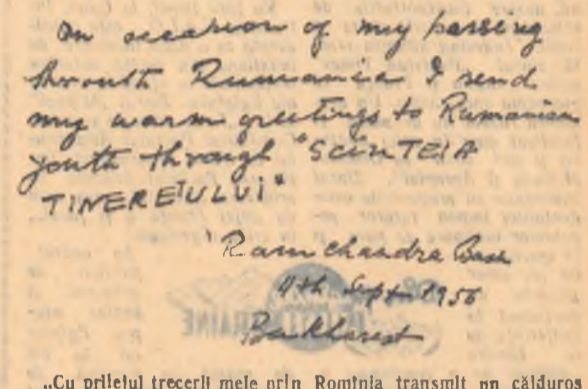 On occasion of my passing
through Rumania I send
my warm greetings to Rumanian
youth through "SCÎNTEIA
TINERETULUI"
Ramchandra Bose
4th Sept 1956
Bukharest
„Cu prilejul trecerii mele prin Romînia transmit un călduros